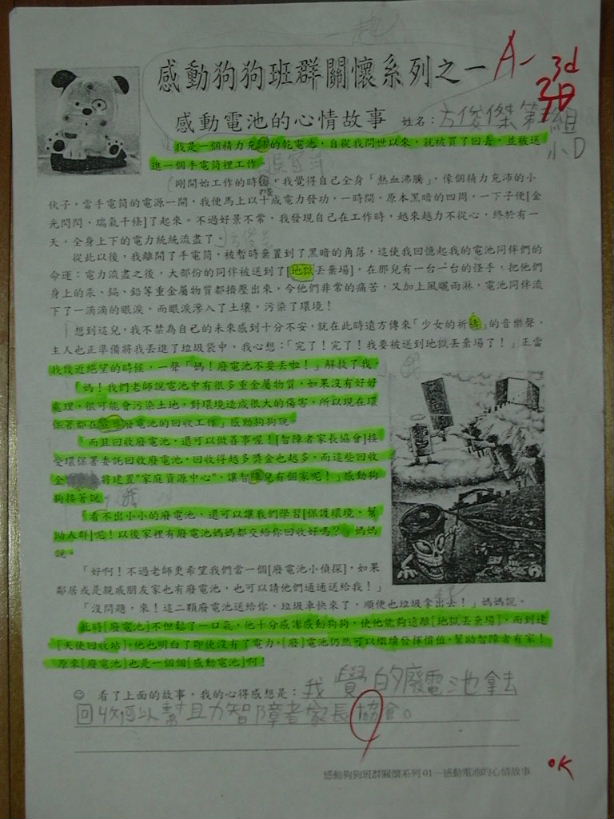 感動狗狗班群關懷系列之一
A-
3d
感動電池的心情故事 姓名：方俊傑第 組
小D
我是一個精力充沛的乾電池，自從我問世以來，就被買了回去，並被送
進一個手電筒裡工作。
剛開始工作的時候，我覺得自己全身「熱血沸騰」，像個精力充沛的小
伙子，當手電筒的電源一開，我便馬上以十成電力發功，一時間，原本黑暗的四周，一下子便[金
光閃閃、瑞氣千條]了起來。不過好景不常，我發現自己在工作時，越來越力不從心，終於有一
天，全身上下的電力統統流盡了。
從此以後，我離開了手電筒，被暫時棄置到了黑暗的角落，這使我回憶起我的電池同伴們的
命運：電力流盡之後，大部份的同伴被送到了[地獄丟棄場]，在那兒有一台一台的怪手，把他們
身上的汞、鎘、鉛等重金屬物質都擠壓出來，令他們非常的痛苦，又加上風曬雨淋，電池同伴流
下了一滴滴的眼淚，而眼淚滲入了土壤，污染了環境！
想到這兒，我不禁為自己的未來感到十分不安，就在此時遠方傳來「少女的祈禱」的音樂聲，
主人也正準備將我丟進了垃圾袋中，我心想：「完了！完了！我要被送到地獄丟棄場了！」正當
我幾近絕望的時候，一聲「媽！廢電池不要丟啦！」解救了我。
「媽！我們老師說電池中有很多重金屬物質，如果沒有好好
處理，很可能會污染土地，對環境造成很大的傷害，所以現在環
保署都在 廢電池的回收工作」感動狗狗說。
「而且回收廢電池，還可以做善事喔！[智障者家長協會]接
受環保署委託回收廢電池，回收得越多獎金也越多，而這些回收
全 將建置"家庭資源中心"，讓智障兒有個家呢！」感動狗
狗接著說。
「看不出小小的廢電池，還可以讓我們學習[保而環境，幫
助人群]呢！以後家裡有廢電池媽媽都交給你回收好嗎？」媽媽
說。
「好啊！不過老師更希望我們當一個[廢電池小偵探]，如果
鄰居或是親戚朋友家也有廢電池，也可以請他們通通送給我！」
「沒問題，來！這二顆廢電池送給你，垃圾車快來了，順便也垃圾拿出去！」媽媽說。
此時[廢電池]不但鬆了一口氣，他十分感謝感動狗狗，使他能夠遠離[地獄丟棄場]，而到達
[天使回收站]，他也明白了即使沒有了電力，[廢]電池仍然可以繼續發揮價值，幫助智障者有家！
原來[廢電池]也是一個個[感動電池]啊！
☺ 看了上面的故事，我的心得感想是：我覺的廢電池拿去
回收可以幫助智障者家長協會。
感動狗狗班群關懷系列01－感動電池的心情故事
OK